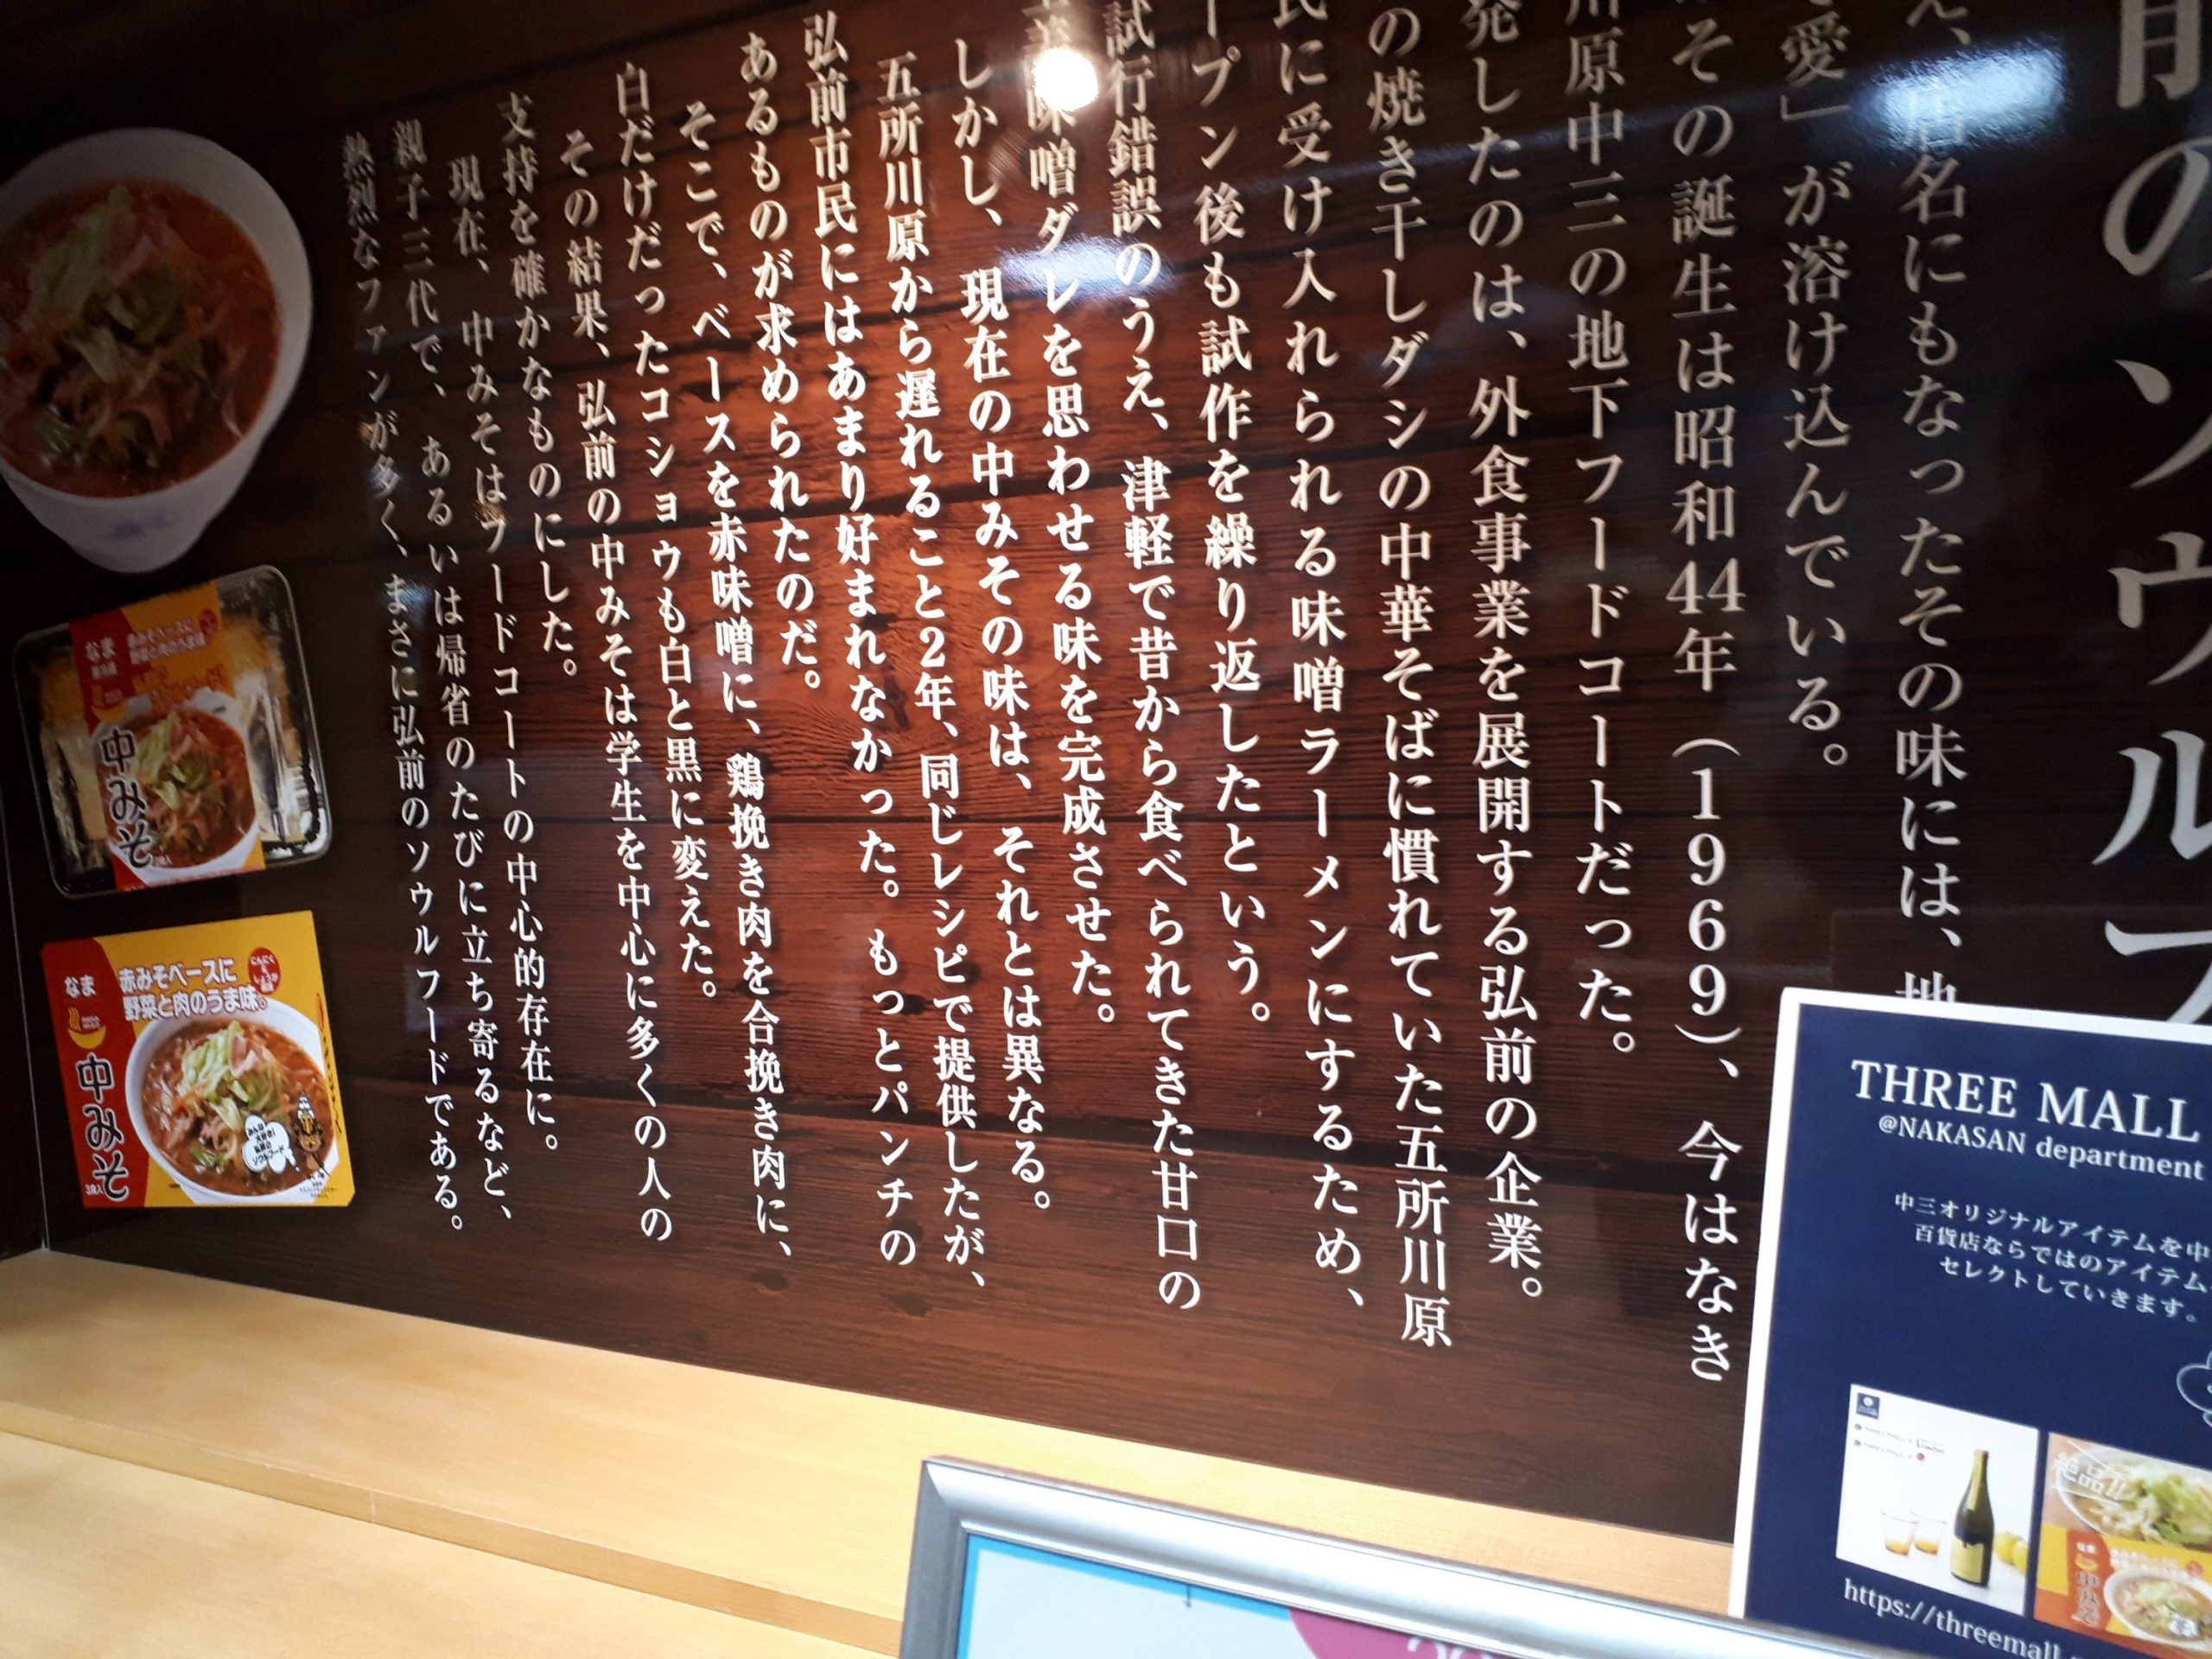 前のソウルフ
え、店名にもなったその味には、地
愛」が溶け込んでいる。
その誕生は昭和44年（1969）、今はなき
川原中三の地下フードコートだった。
発したのは、外食事業を展開する弘前の企業。
の焼き干しダシの中華そばに慣れていた五所川原
民に受け入れられる味噌ラーメンにするため、
ープン後も試作を繰り返したという。
試行錯誤のうえ、津軽で昔から食べられてきた甘口の
味噌ダレを思わせる味を完成させた。
しかし、現在の中みその味は、それとは異なる。
五所川原から遅れること2年、同じレシピで提供したが、
弘前市民にはあまり好まれなかった。もっとパンチの
あるものが求められたのだ。
そこで、ベースを赤味噌に、鶏挽き肉を合挽き肉に、
白だけだったコショウも白と黒に変えた。
その結果、弘前の中みそは学生を中心に多くの人の
支持を確かなものにした。
現在、中みそはフードコートの中心的存在に。
親子三代で、あるいは帰省のたびに立ち寄るなど、
熱烈なファンが多く、まさに弘前のソウルフードである。
なま
赤みそベースに
野菜と肉のうま味
中みそ
なま
赤みそベースに
野菜と肉のうま味。
にんにく
しょうが
中みそ
3食入
THREE MALL
@NAKASAN department
中三オリジナルアイテムを中
百貨店ならではのアイテム
セレクトしていきます。
絶品!!
なま
赤みそベースに
野菜と肉のうま味
中みそ
https://threemall.